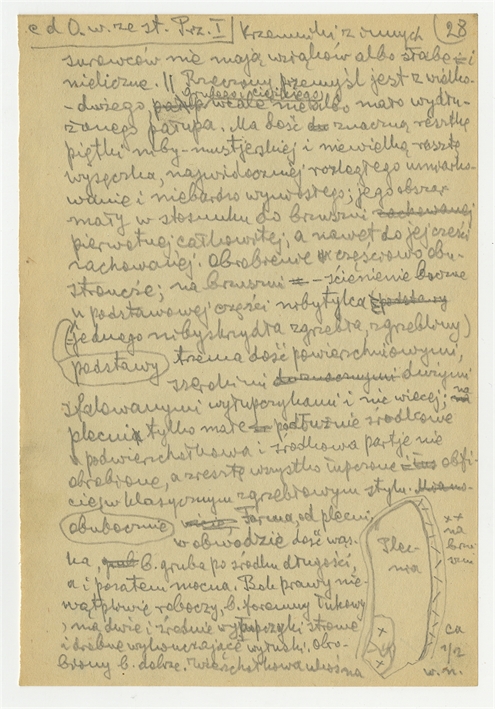 c d O. w. ze st. Prz. I Krzemniki z innych (28
surowców nie mają wziąków albo słabe i
nieliczne. || Ręczony przemyśl jest z wielko-
-dużego, grubego i ciężkiego wcale nie albo mało wydłu-
żonego łupa. Ma dość znaczną resztkę
piętki niby-mustjerskiej i niewielką resztę
wysęczka, najwidoczniej rozległego umiarko-
wanie i niebardzo wyniosłego; jego obszar
mały w stosunku do brzuszni zachowanej
pierwotnej całkowitej, a nawet do jej części
zachowanej. Obrobienie częściowo obu-
stroncze; na brzuszni – ścienienie boczne
u podstawowej części nibytylca podstawy
(jednego nibyskrzydła zgrzebła, zgrzebliny)
podstawy trzema dość powierzchniowymi,
szerokimi do znacznymi dużymi
sfalowanymi wyłupczykami i nic więcej; na
plecni tylko małe podłużnie środkowe
a podwierzchołkowa i środkowa partje nie
obrobione, a zresztą wszystko łuperzone obfi-
ciej w klasycznym zgrzebłowym stylu.
obubocznie Forma, od pleczni,
w obwodzie dość wąs-
ka, b. gruba po środku długości,
a i pozatem mocna. Bok prawy nie-
wątpliwie roboczy, b. foremny łukowy
, ma duże i średnie wyłupczyki strome
i drobne wykończające wyłuski, obro-
biony b. dobrze. Wierzchołkowa ukośna
Plec-
nia
x x
na
brzu-
szni
x
x
ca
1/2
w. n.